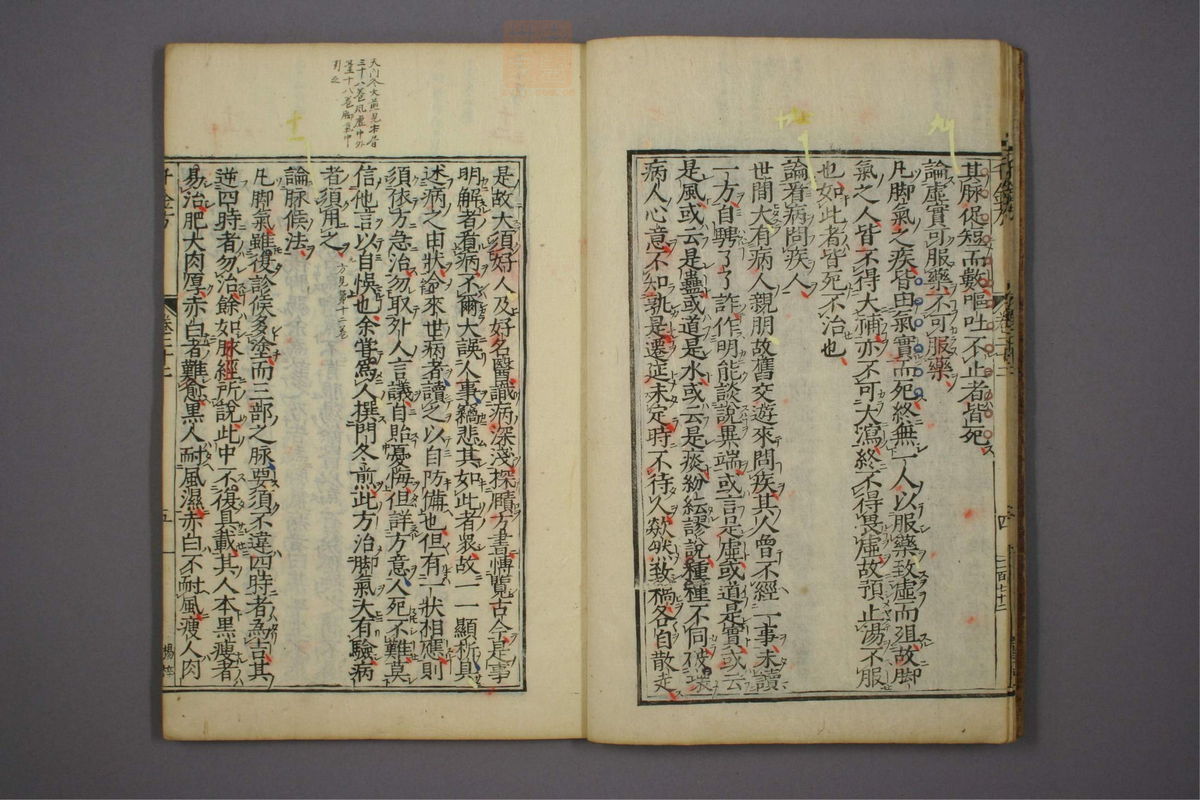 其脉促短而數嘔吐不止者皆死
論虛實可服藥不可服藥
凡脚氣之疾皆由氣實而死終無一人以服藥致虛而殂故脚
氣之人皆不得大補亦不可大瀉終不得畏虛故預止湯不服
也如此者皆死不治也
論看病問疾人
世間大有病人親朋故舊交遊來問疾其人曾不經一事未讀
一方自騁了了詐作明能談說異端或言是虛或道是實或云
是風或云是蠱或道是水或云是痰紛紜謬說種種不同破壞
病人心意不知孰是遷延未定時不待人欻然致禍各自散走
四
卷二十二
天門冬大煎見本書
三十八卷風虛中外
臺十八卷脚氣中
引之
十一
是故大須好人及好名醫識病深淺探賾方書博覽古今是事
明解者看病不爾大誤人事竊悲其如此者衆故一一顯析具
述病之由狀令來世病者讀之以自防備也但有一狀相應則
須依方急治勿取外人言議自貽憂悔但詳方意人死不難莫
信他言以自悞也余嘗爲人撰門冬煎此方治脚氣大有驗病
者須用之 方見第十二卷
論脉候法
凡脚氣雖復診候多塗而三部之脉要須不違四時者爲吉其
逆四時者勿治餘如脉經所說此中不復具載其人本黑瘦者
易治肥大肉厚赤白者難愈黑人耐風濕赤白不耐風瘦人肉
千金方
卷二十二
五